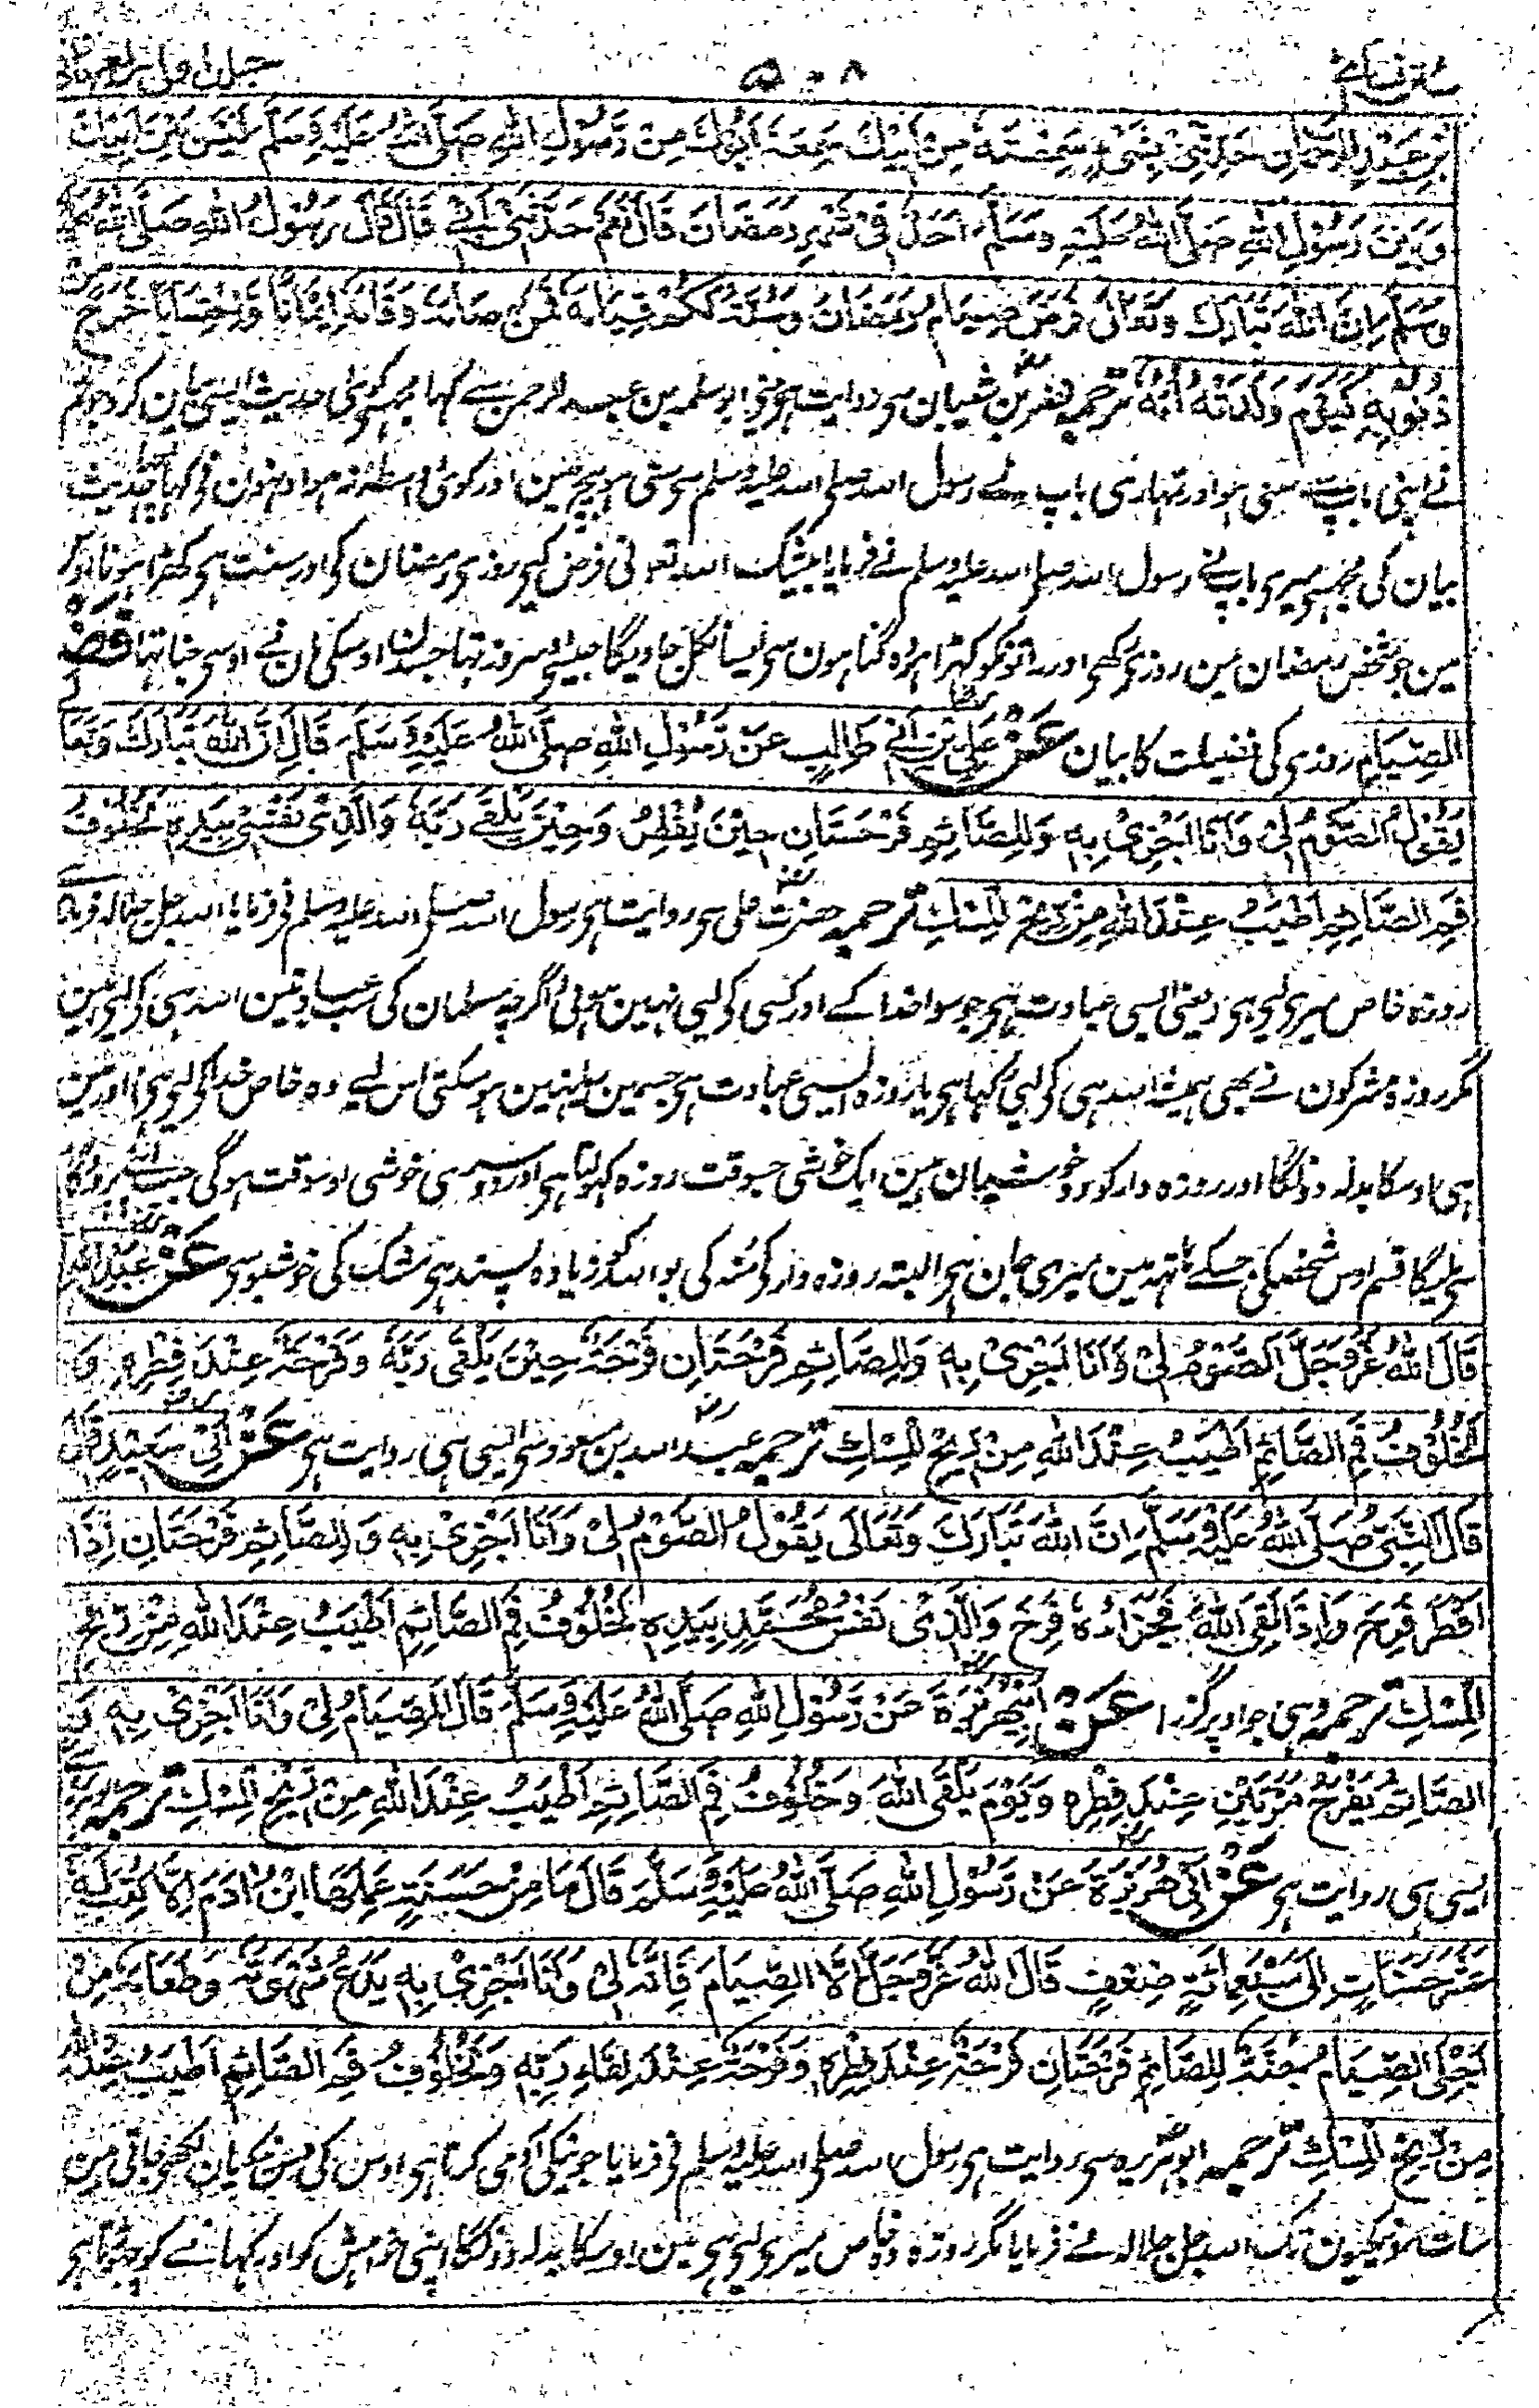 سنن نسائی ۵۰۸ جلد اول
بن عبد الرحمان حدثنی بشیء سمعته من ابیك سمعه ابوك من رسول الله صلی الله علیه وسلم لیس بین ابیك
وبین رسول الله صلی الله علیه وسلم احد فی شهر رمضان قال نعم حدثنی ابی قال قال رسول الله صلی الله علیه
وسلم ان الله تبارك وتعالی فرض صیام رمضان وسننت لکم قیامه فمن صامه وقامه ایمانا واحتسابا خرج من
ذنوبه کیوم ولدته امه ترجمہ نضر بن شیبان سی روایت ہی مینے ابو سلمہ بن عبد الرحمن سے کہا مجہسی کوئی حدیث ایسی بیان کرو جو تم
نے اپنی باپ سے سنی ہو اور تمہاری باپ نے رسول اللہ صلی اللہ علیہ وسلم سی سنی ہو بیچ مین اور کوئی واسطہ نہ ہو اونہون نے کہا حدیث
بیان کی مجہسی میری باپ نے رسول اللہ صلی اللہ علیہ وسلم نے فرمایا بیشک اللہ تعالی نی فرض کیی روزی رمضان کی اور سنت ہی کھڑا ہونا
مین جو شخص رمضان مین روزی رکھی اور راتونکو کہڑا ہو وہ گناہون سی ایسا نکل جاویگا جیسے اوس روز تہا جسدن اوسکی مان نے اوسی جنا تہا فضل
الصیام روزی کی فضیلت کا بیان عن علی بن ابی طالب عن رسول الله صلی الله علیه وسلم قال ان الله تبارك وتعالی
یقول الصوم لی وانا اجزی به وللصائم فرحتان حین یفطر وحین یلقی ربه والذی نفسی بیده لخلوف
فم الصائم اطیب عند الله من ریح المسك ترجمہ حضرت علی سی روایت ہی رسول اللہ صلی اللہ علیہ وسلم نی فرمایا اللہ جل جلالہ فرماتا
روزہ خاص میری لیی ہی یعنی ایسی عبادت ہی جو سوا خدا کے اور کسی کی لیی نہین ہوئی اگرچہ مسلمان کی سب عبادتین اللہ ہی کی لیی ہین
مگر روزہ مشرکون نے بھی ہمیشہ اللہ ہی کی لیی رکہا ہی یا روزہ ایسی عبادت ہی جسمین ریا نہین ہو سکتی اس لیے وہ خاص خدا کی لیی ہی اور مین
ہی اوسکا بدلہ دونگا اور روزہ دار کو دو خوشیان ہین ایک خوشی جسوقت روزہ کہولتا ہی اور دوسری خوشی اوسوقت ہوگی جب اپنے پروردگار
سی ملیگا قسم اوس شخص کی جسکے ہاتہہ مین میری جان ہی البتہ روزہ دار کی منہ کی بو اللہ کو زیادہ پسند ہی مشک کی خوشبو سی عن عبد الله
قال الله عز وجل الصوم لی وانا اجزی به وللصائم فرحتان فرحة حین یلقی ربه وفرحة عند فطره و
لخلوف فم الصائم اطیب عند الله من ریح المسك ترجمہ عبد اللہ بن مسعود سی ایسی ہی روایت ہی عن ابی سعید قال
قال النبی صلی الله علیه وسلم ان الله تبارك وتعالی یقول الصوم لی وانا اجزی به وللصائم فرحتان اذا
افطر فرح واذا لقی الله فجزاه فرح والذی نفس محمد بیده لخلوف فم الصائم اطیب عند الله من ریح
المسك ترجمہ وہی جو اوپر گزرا عن ابی هریرة عن رسول الله صلی الله علیه وسلم قال الصیام لی وانا اجزی به و
الصائم یفرح مرتین عند فطره ویوم یلقی الله وخلوف فم الصائم اطیب عند الله من ریح المسك ترجمہ
ایسی ہی روایت ہی عن ابی هریرة عن رسول الله صلی الله علیه وسلم قال ما من حسنة عملها ابن ادم الا کتب له
عشر حسنات الی سبعمائة ضعف قال الله عز وجل الا الصیام فانه لی وانا اجزی به یدع شهوته وطعامه من
اجلی الصیام جنة للصائم فرحتان فرحة عند فطره وفرحة عند لقاء ربه ولخلوف فم الصائم اطیب عند الله
من ریح المسك ترجمہ ابو ہریرہ سی روایت ہی رسول اللہ صلی اللہ علیہ وسلم نی فرمایا جو نیکی آدمی کرتا ہی اوس کی دس نیکیان لکہی جاتی ہین
سات سو نیکیون تک اللہ جل جلالہ نے فرمایا مگر روزہ وہ خاص میری لیی ہی مین اوسکا بدلہ دونگا اپنی خواہش کو اور کہانے کو چہوڑتا ہی